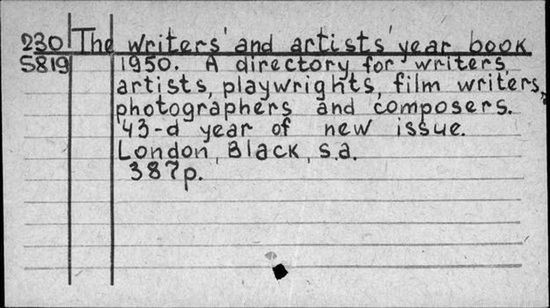 230 The writers' and artists' year book
S819 1950. A directory for writers,
artists, playwrights, film writers,
photographers and composers.
43-d year of new issue.
London, Black, s.a.
387p.